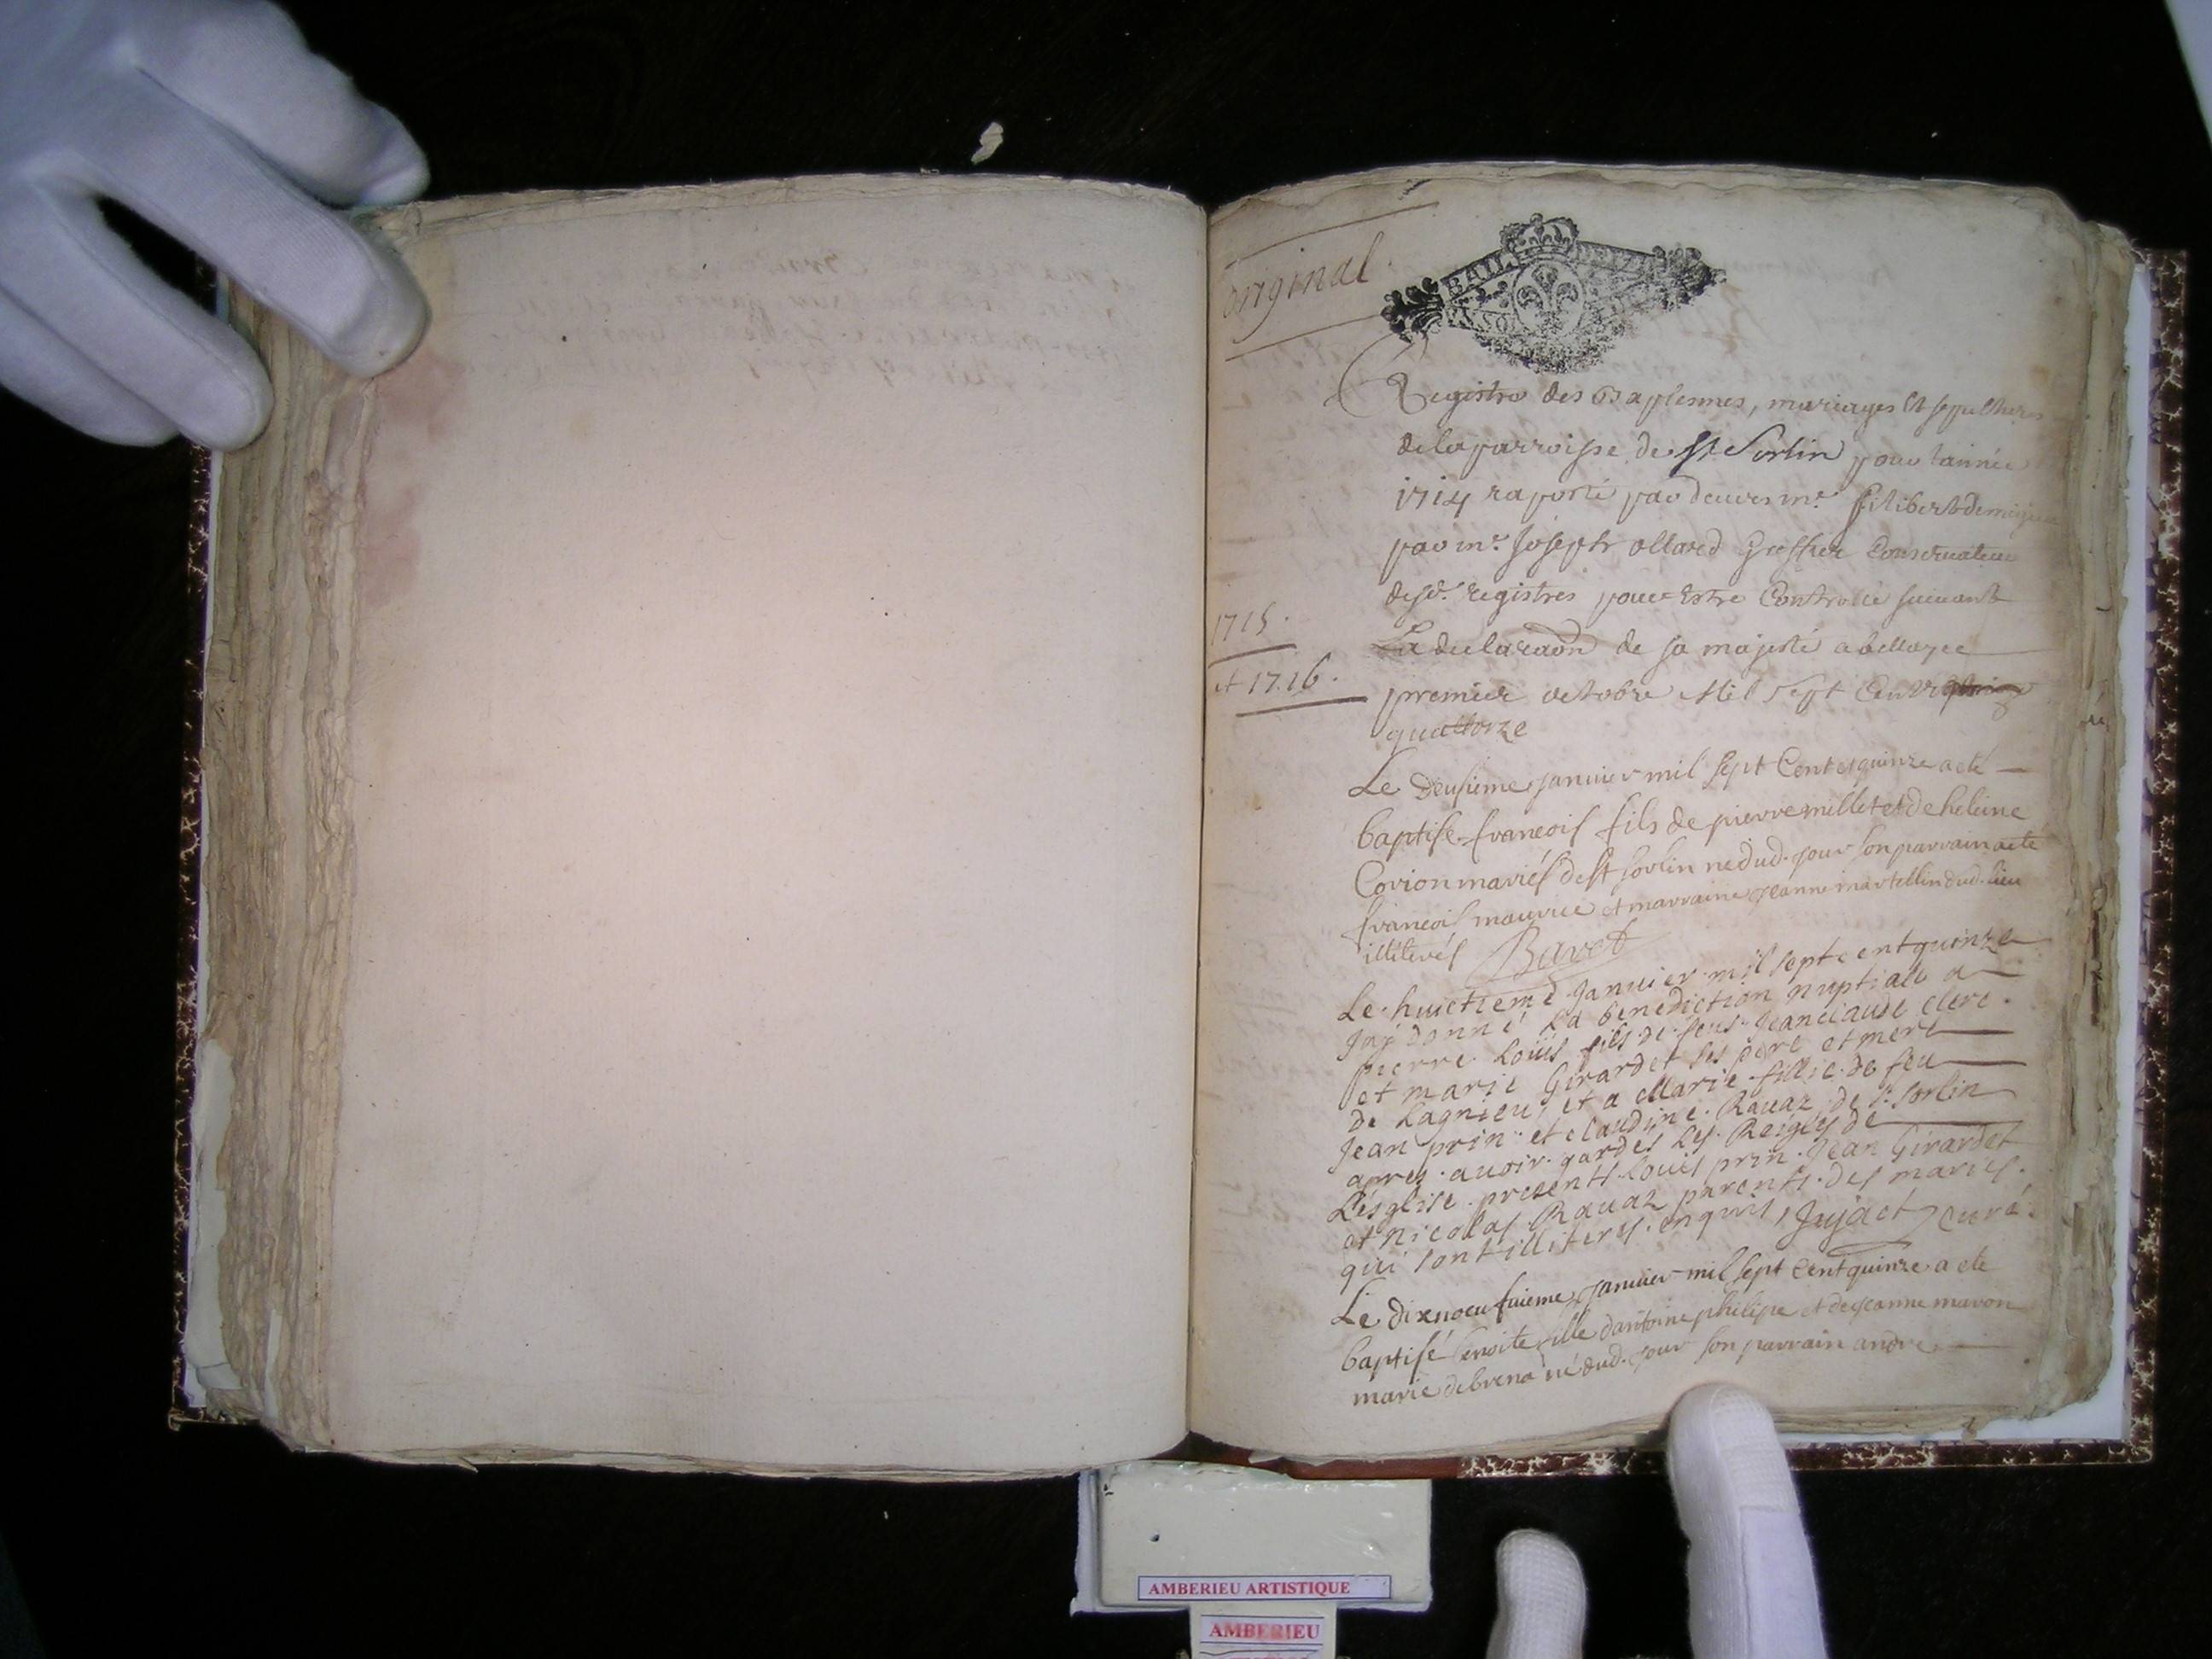 original
Registre des Baptesmes, mariages et sepultures
de la parroisse de St Sorlin pour lannée
1714 raporté par deuers mr. filibert
par mr. Joseph ollard Greffier Conseruateur
desd. registres pour Estre Controllé suiuant
La declaraon de sa majesté a belloyee
1715.
et 1716.
premier octobre Mil sept Cent
quattorze
Le deusieme januier mil sept Cent et quinze a ete
baptisé francois fils de pierre millet et de heleine
Corion mariés de st sorlin né dud. jour son parrain a eté
francois maurice et marraine jeanne martellin dud. lieu
illiterés Baret
Le huictieme januier mil sept cent quinze
Jay donné La benediction nuptiale a
pierre Loüis fils de feus Jean claude clerc.
et marie Girardet ses pere et mere
de Lagnieu, et a Marie fillie de feu
Jean prin et claudine Rauaz de St Sorlin
apres auoir gardés Les Reigles de
L'esglise presents Louis prin Jean Girardet
et nicolas Rauaz parents des mariés.
qui sont illiterés enquis, Jujact curé.
Le dixnoeufuieme januier mil sept Cent quinze a ete
baptisé benoite fille dantoine philipe et de jeanne maron
mariés debrena né dud. jour son parrain andre
AMBERIEU ARTISTIQUE
AMBERIEU